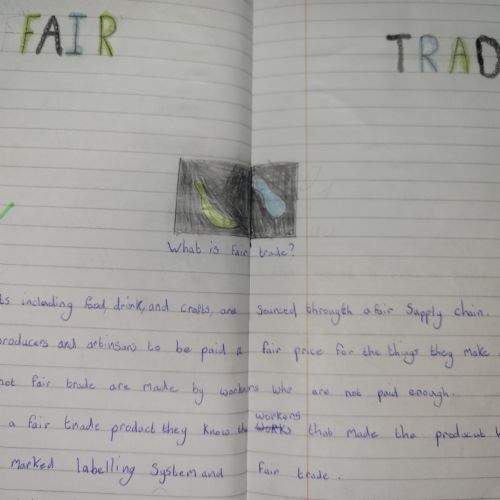 FAIR TRAD
What is Fair trade?
ts including food, drink, and crafts, are sourced throughth a fair Supply chain.
producers and artinsans to be paid a fair price for the things they make
not fair trade are made by workers who are not paid enough.
a fair trade product they know the works workers that made the product
marked labelling System and fair trade.